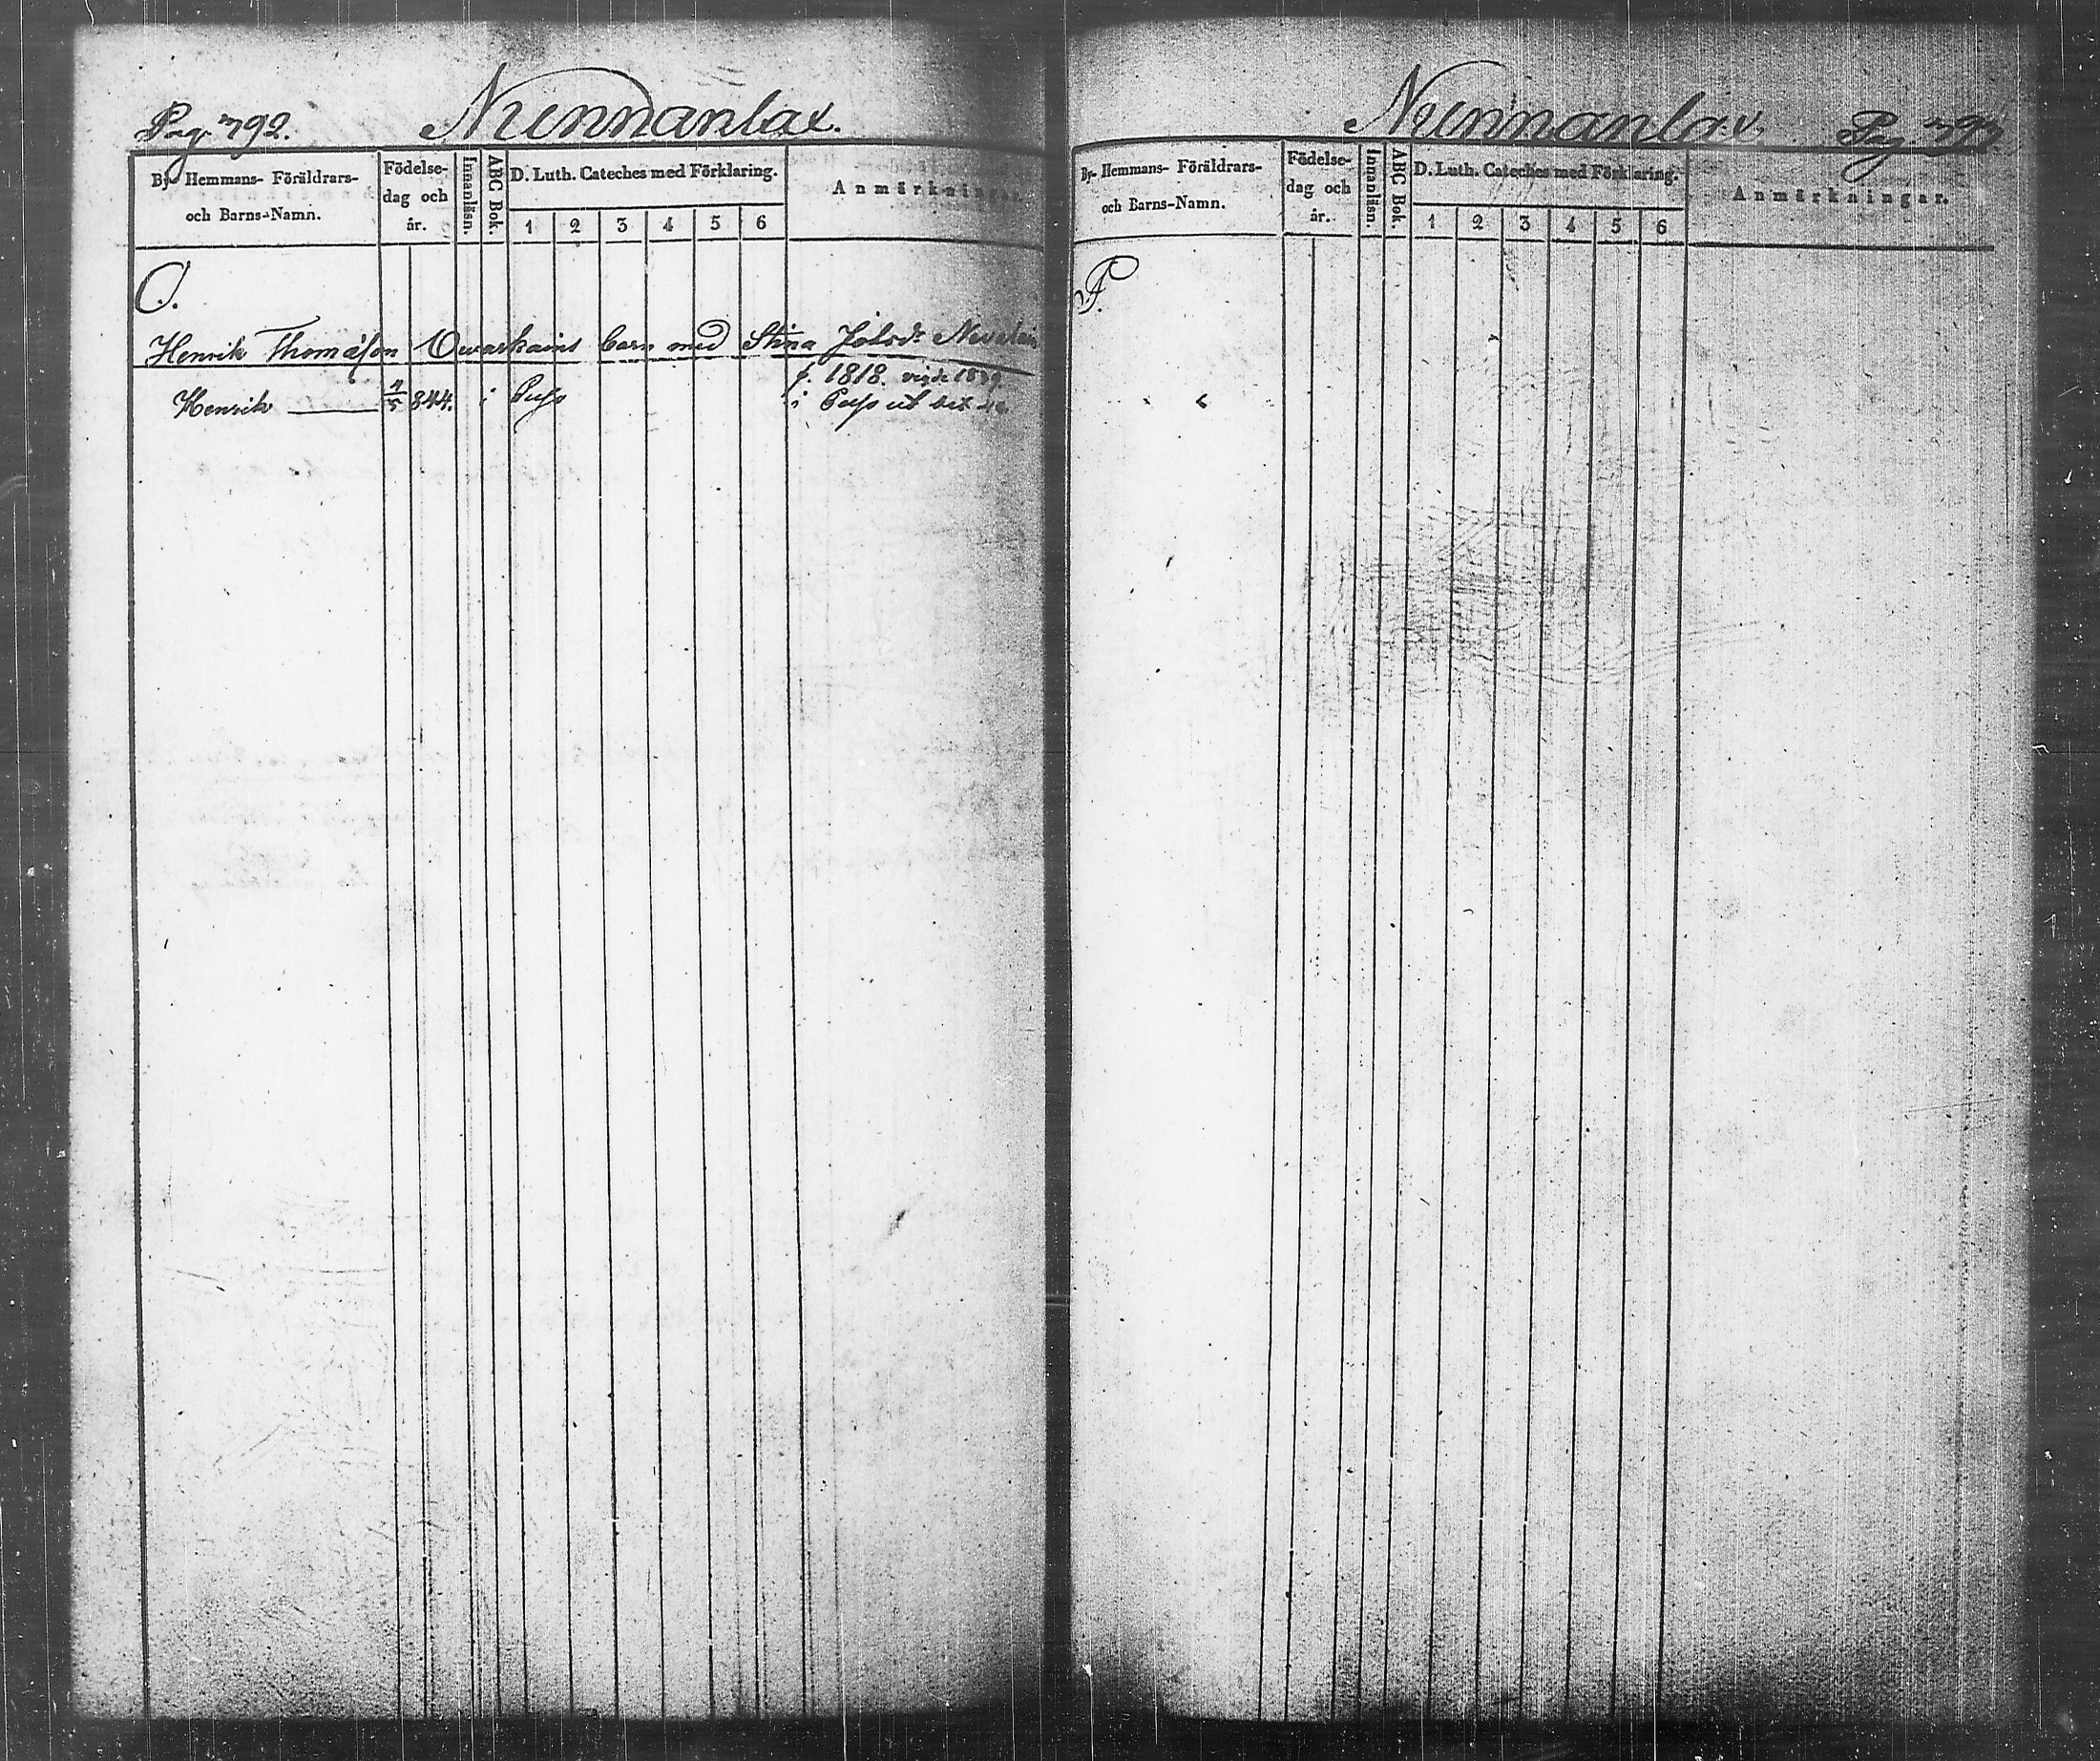 Pag. 792. Nunnanlax.
By- Hemmans- Föräldrars- och Barns-Namn.
Födelse-dag och år.
Innanläsn.
ABC Bok.
D. Luth. Cateches med Förklaring.
1 2 3 4 5 6
Anmärkningar.
O.
Henrik Thomasson Owaskains barn med Stina
f. 1818. vigde 1839.
Henrik 844. i
i
Nunnanlax. Pag 793
By- Hemmans- Föräldrars- och Barns-Namn.
Födelse-dag och år.
Innanläsn.
ABC Bok.
D. Luth. Cateches med Förklaring.
1 2 3 4 5 6
Anmärkningar.
P.